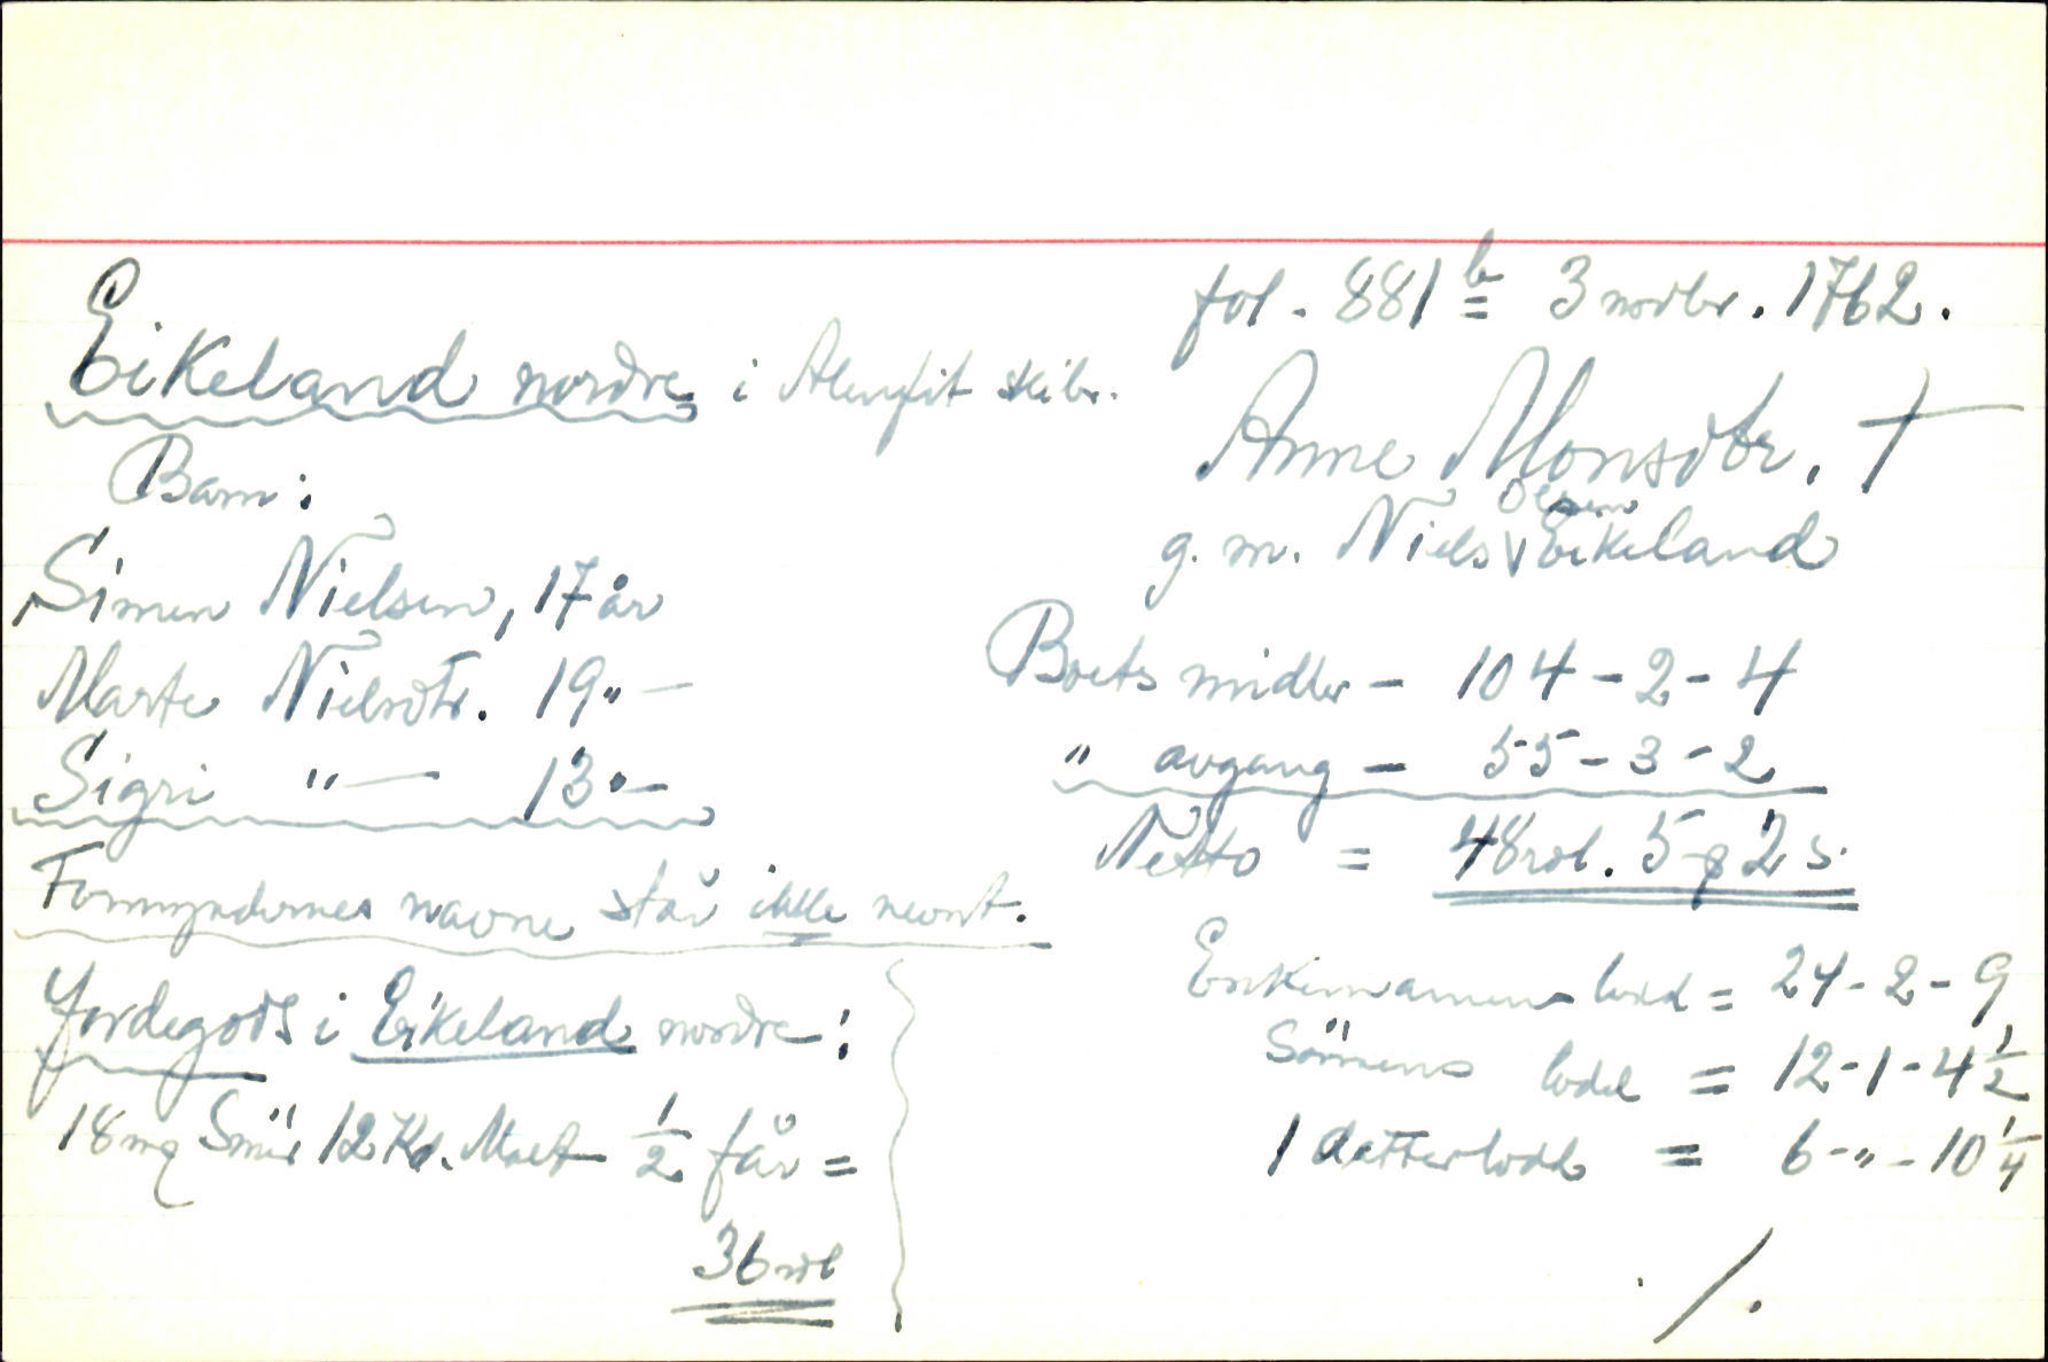 fol. 881 b 3 novbr. 1762.
Eikeland nordre i Alenfit skibr.
Anne Monsdtr. †
g. m. Niels Olsen Eikeland
Barn:
Simen Nielsen, 17 år
Marte Nielsdtr. 19 " —
Sigri " — 13 " —
Formyndernes navne står ikke nevnt.
Jordegods i Eikeland nordre:
18 mq Smör 12 Kd. Malt ½ får =
36 rdl
Boets midler - 104 - 2 - 4
" avgang - 55 - 3 - 2
Netto = 48 rdl. 5 β 2 s.
Enkemannens lodd = 24 - 2 - 9
Sönnens lodd = 12 - 1 - 4 ½
1 datterlodd = 6 - " - 10 ¼
/.